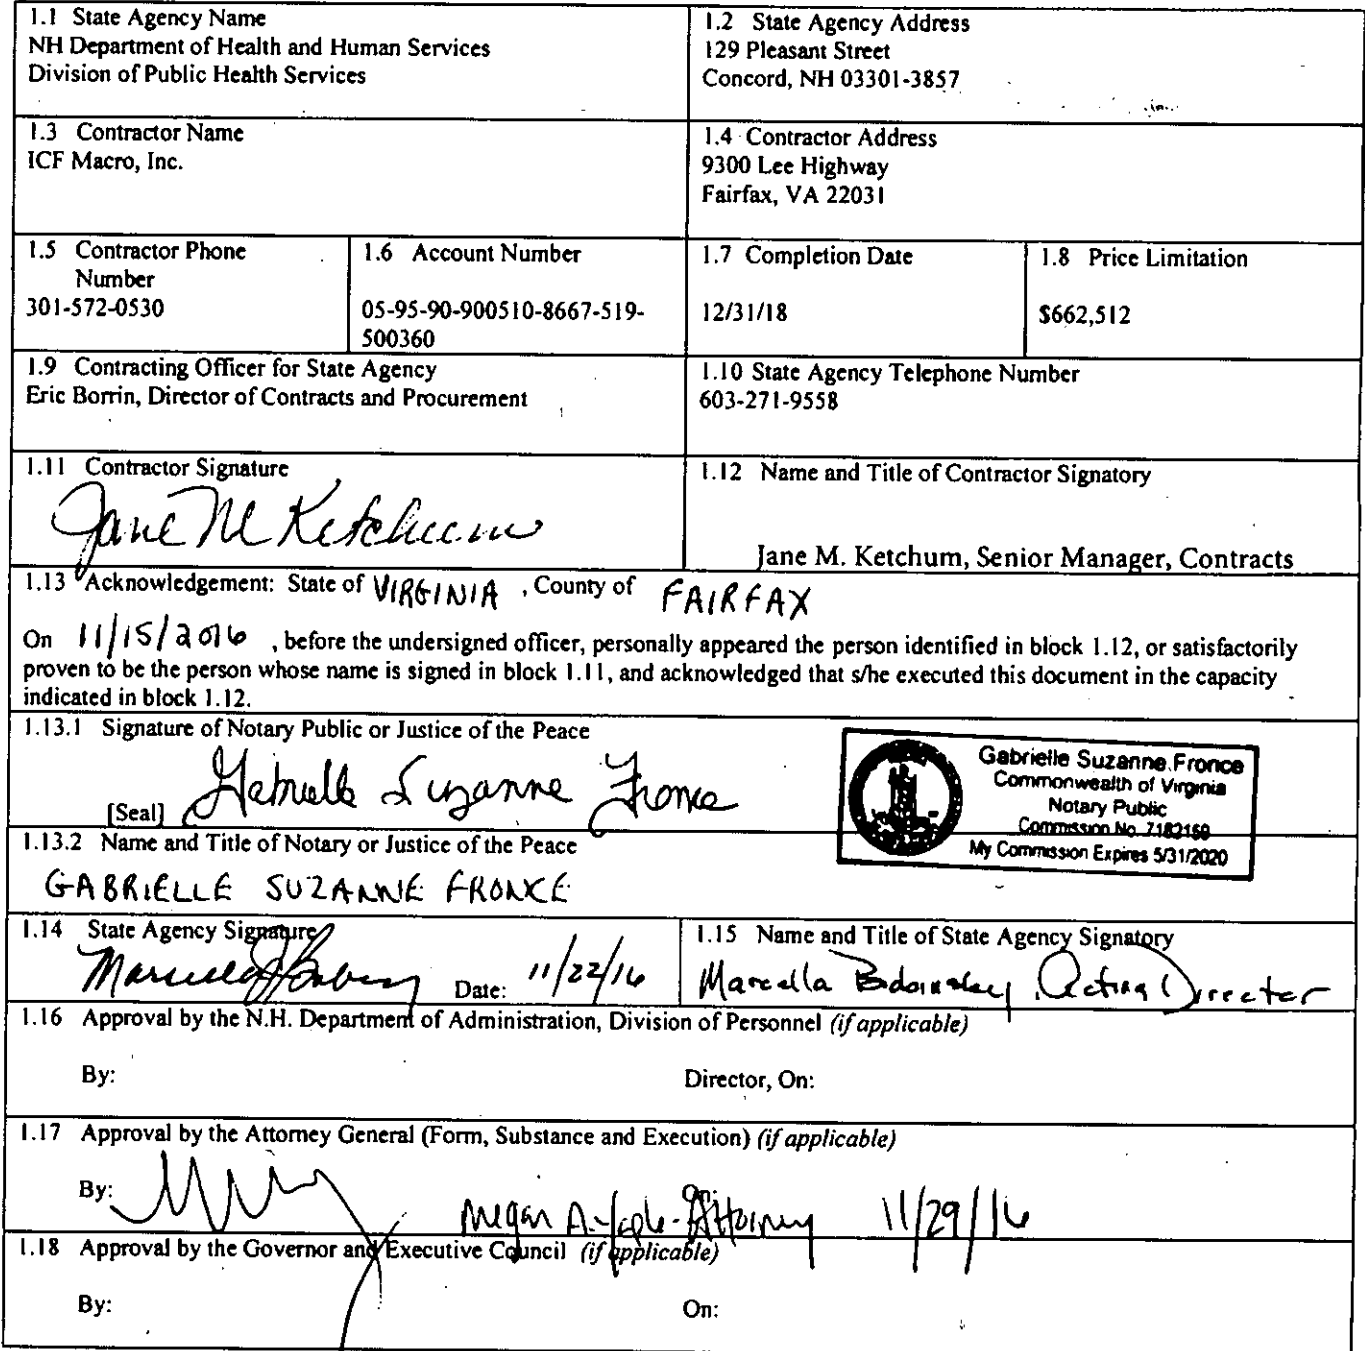 1.1 State Agency Name
NH Department of Health and Human Services
Division of Public Health Services
1.2 State Agency Address
129 Pleasant Street
Concord, NH 03301-3857
1.3 Contractor Name
ICF Macro, Inc.
1.4 Contractor Address
9300 Lee Highway
Fairfax, VA 22031
1.5 Contractor Phone
Number
301-572-0530
1.6 Account Number
05-95-90-900510-8667-519-
500360
1.7 Completion Date
12/31/18
1.8 Price Limitation
$662,512
1.9 Contracting Officer for State Agency
Eric Borrin, Director of Contracts and Procurement
1.10 State Agency Telephone Number
603-271-9558
1.11 Contractor Signature
Jane M Ketchum
1.12 Name and Title of Contractor Signatory
Jane M. Ketchum, Senior Manager, Contracts
1.13 Acknowledgement: State of VIRGINIA , County of FAIRFAX
On 11/15/2016 , before the undersigned officer, personally appeared the person identified in block 1.12, or satisfactorily
proven to be the person whose name is signed in block 1.11, and acknowledged that s/he executed this document in the capacity
indicated in block 1.12.
1.13.1 Signature of Notary Public or Justice of the Peace
[Seal] Gabrielle Suzanne Fronce
Gabrielle Suzanne Fronce
Commonwealth of Virginia
Notary Public
Commission No. 7182169
My Commission Expires 5/31/2020
1.13.2 Name and Title of Notary or Justice of the Peace
GABRIELLE SUZANNE FRONCE
1.14 State Agency Signature
Date: 11/22/16
1.15 Name and Title of State Agency Signatory
Marcella Acting Director
1.16 Approval by the N.H. Department of Administration, Division of Personnel (if applicable)
By: Director, On:
1.17 Approval by the Attorney General (Form, Substance and Execution) (if applicable)
By: On:
Megan A. Yaple - Attorney 11/29/16
1.18 Approval by the Governor and Executive Council (if applicable)
By: On: